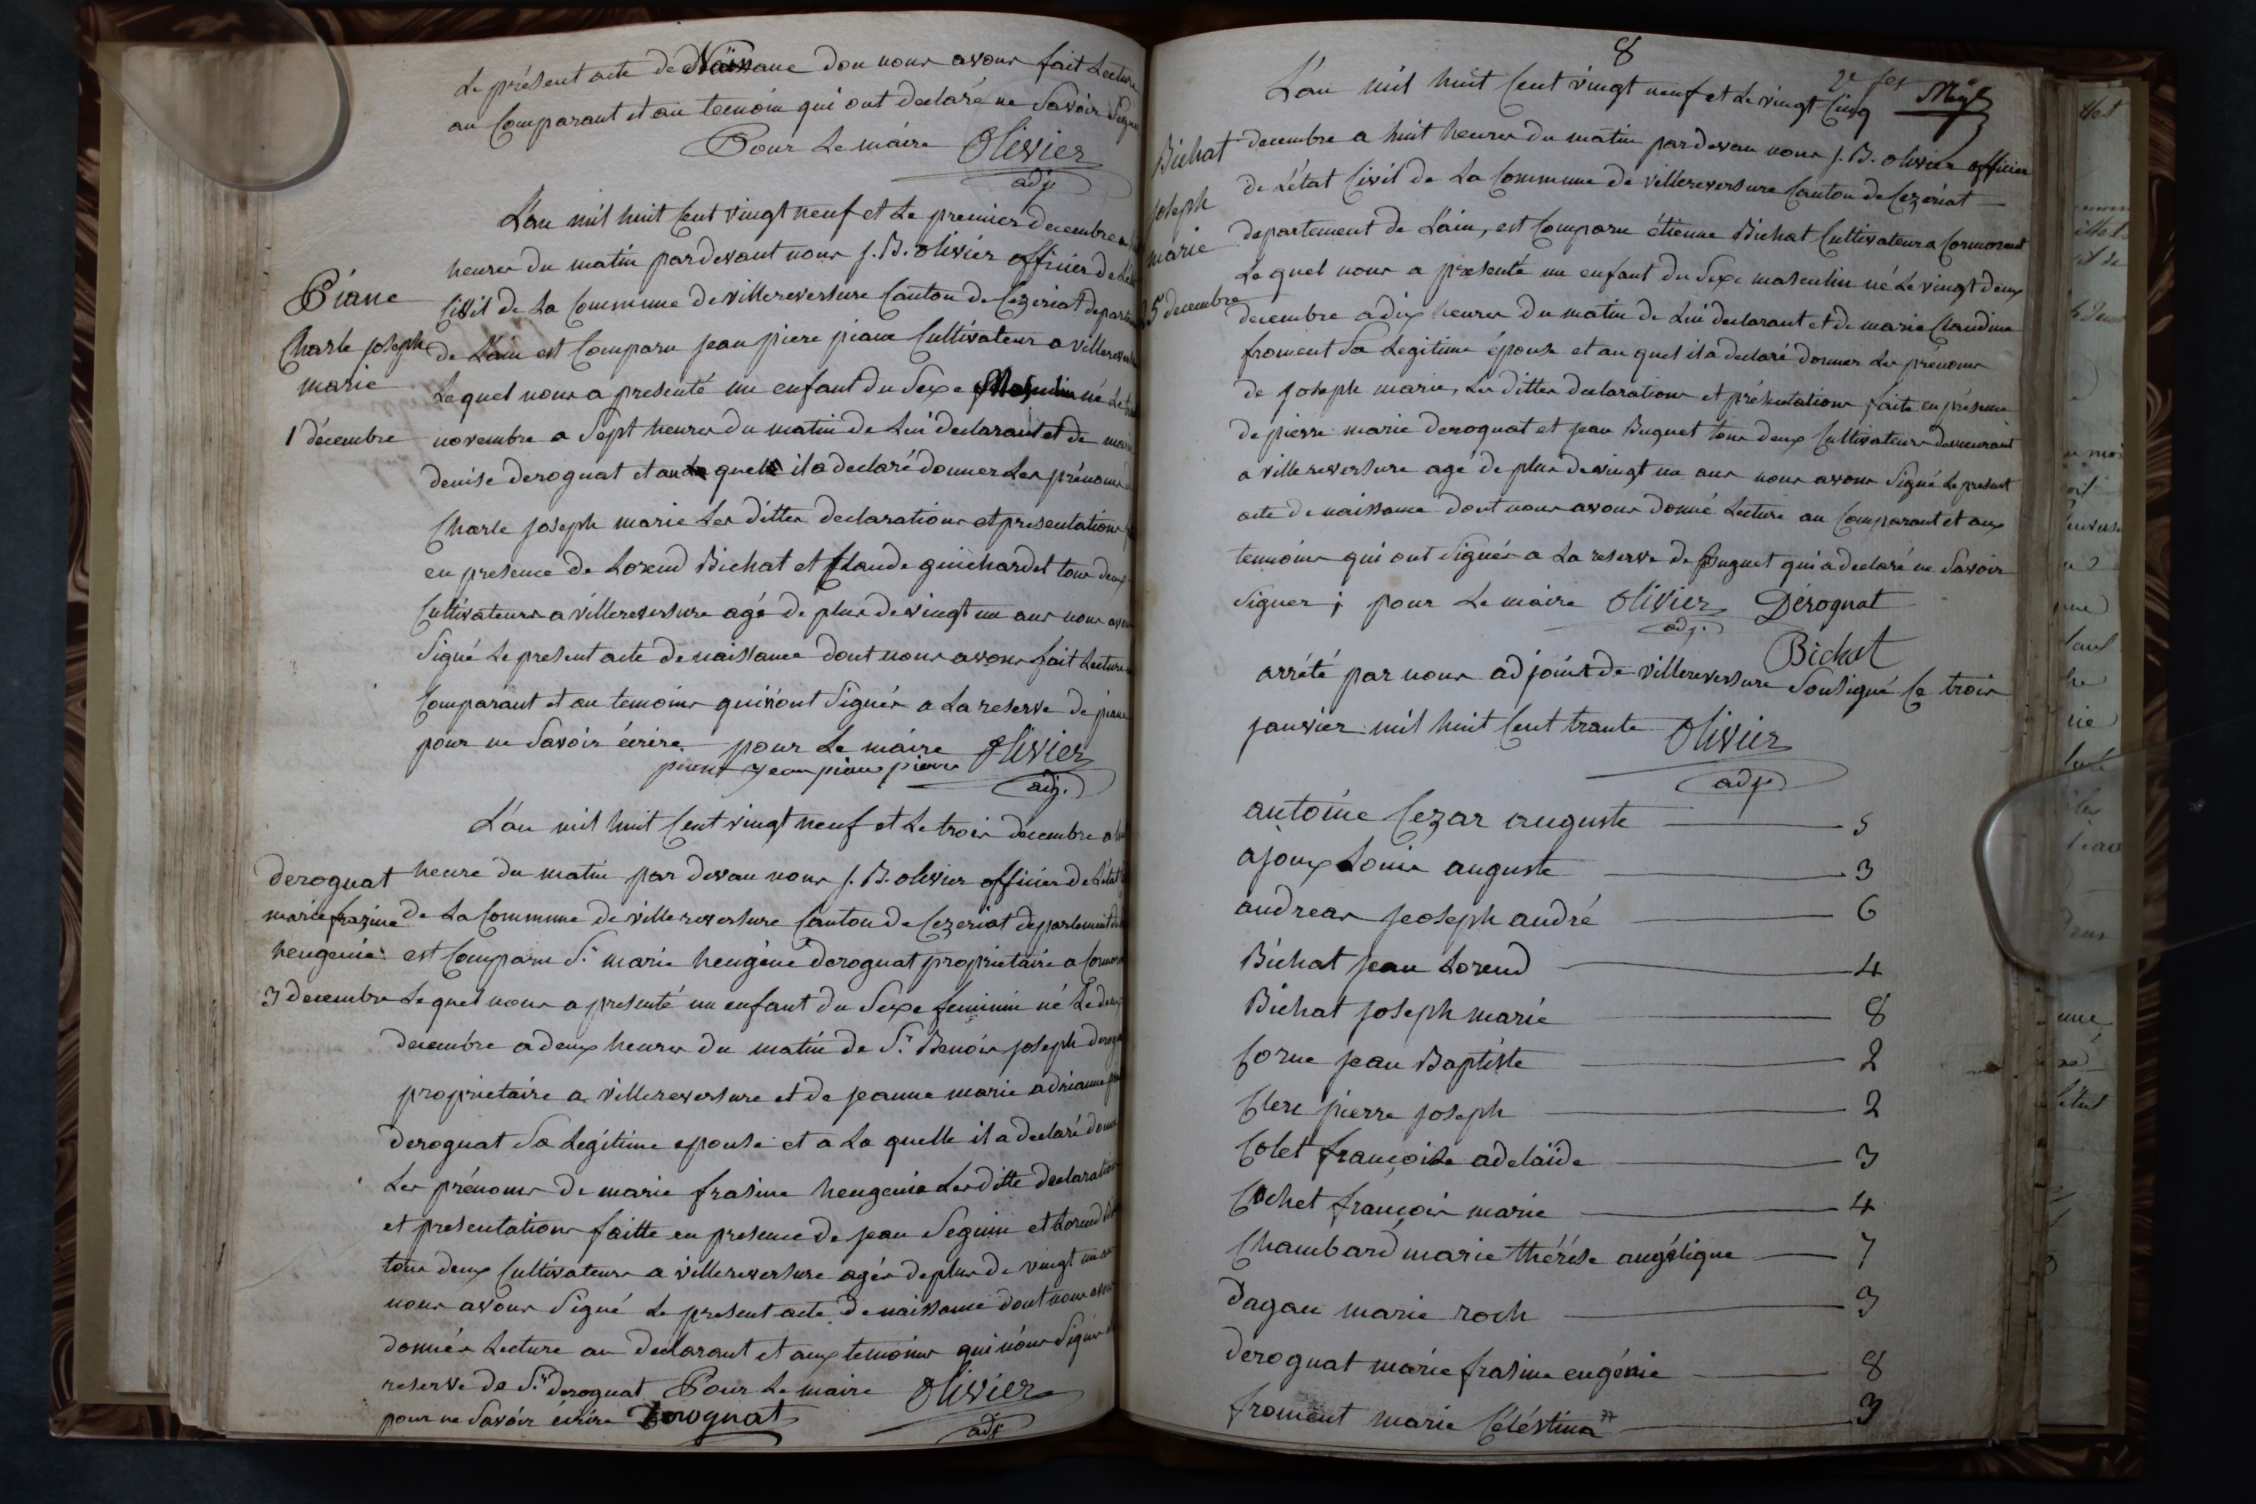 Le présent acte de Naissance don nous avons fait Lecture
au Comparant et au temoin qui ont declaré ne Savoir Signer
Pour Le maire Olivier
adj.
L'an mil huit Cent vingt neuf et Le premier decembre a
heures du matin pardevant nous J. B. olivier officier de
Civil de La Commune de villereversure Canton de Cezeriat
de L'ain est Comparu Jean piere piane Cultivateur a
Piane
Charle Joseph
marie
1 décembre
Lequel nous a presenté un enfant du Sexe Masculin né Le
novembre a Sept heures du matin de Lui declarant et de
denise derognat et au quel il a declaré donner Les prénoms
Charle Joseph marie Les dittes declarations et presentations
en presence de Lorend Bichat et Claude guichardet tous deux
Cultivateurs a villereversure agé de plus de vingt un ans nous avons
Signé Le present acte de naissance dont nous avons fait Lecture
Comparant et au temoins qui n'ont Signés a La reserve de piane
pour ne Savoir écrire pour Le maire Olivier
adj.
L'an mil huit Cent vingt neuf et Le trois décembre a
heure du matin par devan nous J. B. olivier officier de L'état
de La Commune de villereversure Canton de Cezeriat departement
derognat
marie frasine
heugenie
3 decembre
est Comparu Sr. marie heugéne derognat proprietaire a
Lequel nous a presenté un enfant du Sexe feminin né Le deux
decembre a deux heures du matin de Sr. Benois Joseph
proprietaire a villereversure et de Jeanne marie adrianne
derognat Sa Legitime epouse et a La quelle il a declaré donner
Les prénoms De marie frasine heugenie Les ditte declaration
et presentations faitte en presence de Jean Seguin et Lorend
tous deux Cultivateurs a villereversure agés de plus de vingt un
nous avons Signé Le present acte de naissance dont nous avons
donnés Lecture au declarant et aux temoins qui nons Signés
reserve de Sr. derognat Pour Le maire Olivier
pour ne Savoir écrire Dérognat
adj.
8
L'an mil huit Cent vingt neuf et Le vingt Cinq
Bichat
Joseph
marie
25 decembre
decembre a huit heures du matin pardevan nous J. B. olivier officier
de L'état Civil de La Commune de villereversure Canton de Cezériat
departement de L'ain, est Comparu étienne Bichat Cultivateur a Cormorant
Le quel nous a presenté un enfant du Sexe masculin né Le vingt deux
decembre a dix heures du matin de Lui declarant et de marie Claudine
froment Sa Legitime épouse et au quel il a declaré donner Les prénoms
de Joseph marie, Les dittes declarations et présentations faite en présence
de pierre marie derognat et Jean Buguet tous deux Cultivateurs demeurant
a villereversure agé de plus de vingt un ans nous avons Signé Le present
acte de naissance dont nous avons donné Lecture au Comparant et aux
temoins qui ont Signés a La reserve de Buguet qui a declaré ne Savoir
Signer ; pour Le maire Olivier Dérognat
adj.
Bichat
arrété par nous adjoint de villereversure Sousigné Ce trois
Janvier mil huit Cent trante Olivier
adj.
antoine Cezar auguste 5
ajoux Louis auguste 3
andreas Jeoseph andré 6
Bichat Jean Lorend 4
Bichat Joseph marie 8
Corne Jean Baptiste 2
Clerc pierre Joseph 2
Colet françoise adelaïde 3
Cochet françois marie 4
Chambard marie thérése angélique 7
dagan marie roch 3
derognat marie frasine eugénie 8
froment marie Céléstina 3